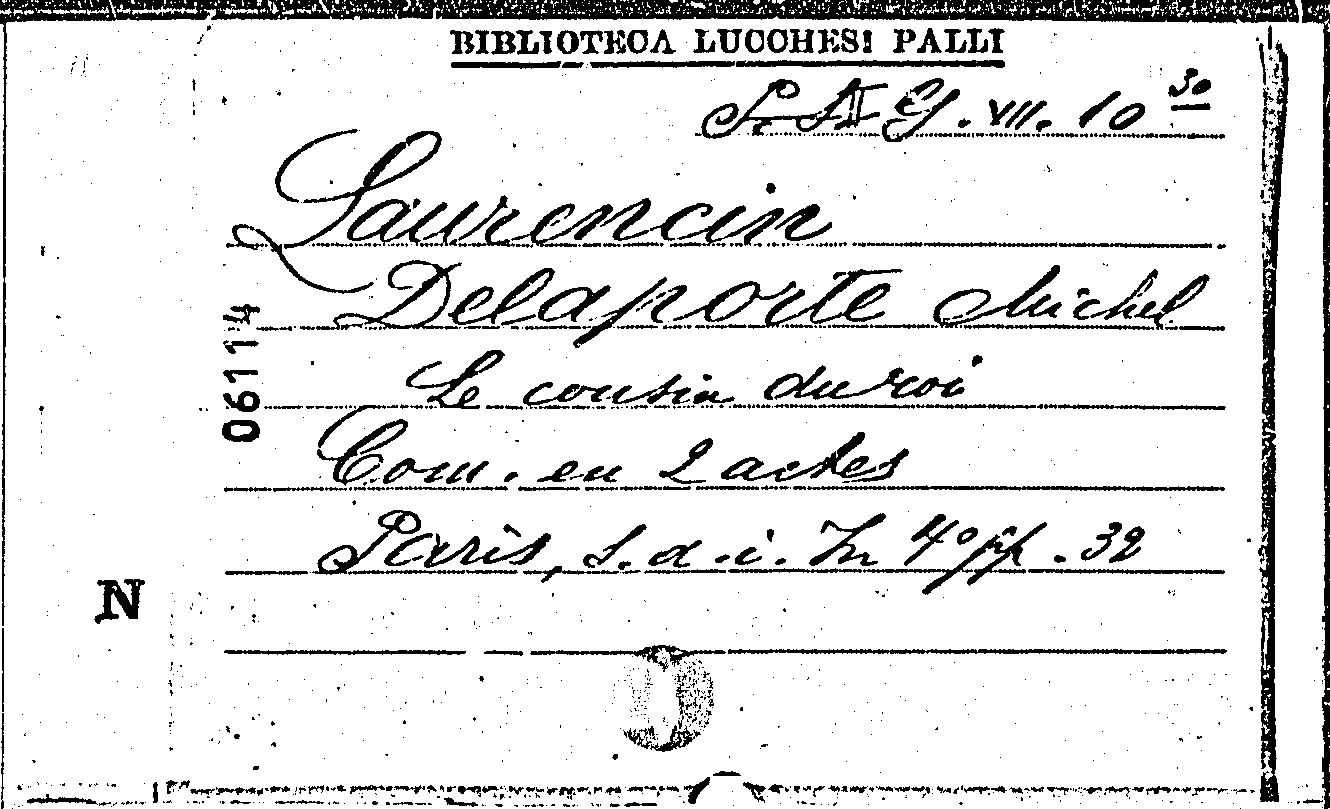 BIBLIOTECA LUCCHESI PALLI
G. VII. 10 30
Laurencin
Delaporte Michel
Le cousin du roi
Com. en 2 actes
Paris, s. d. i. In 4° pp. 32
06114
N